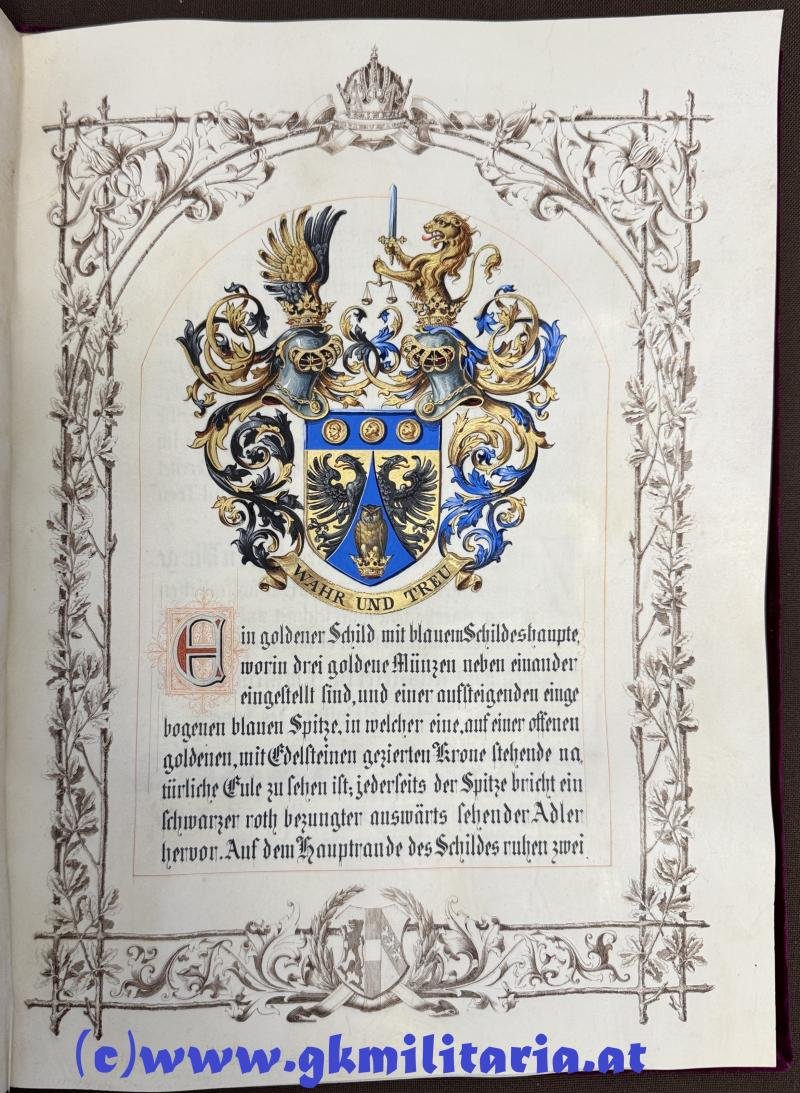 WAHR UND TREU
Ein goldener Schild mit blauem Schildeshaupte,
worin drei goldene Münzen neben einander
eingestellt sind, und einer aufsteigenden einge
bogenen blauen Spitze, in welcher eine, auf einer offenen
goldenen, mit Edelsteinen gezierten Krone stehende na
türliche Eule zu sehen ist; jederseits der Spitze bricht ein
schwarzer roth bezungter auswärts sehender Adler
hervor. Auf dem Hauptrande des Schildes ruhen zwei
(c)www.gkmilitaria.at